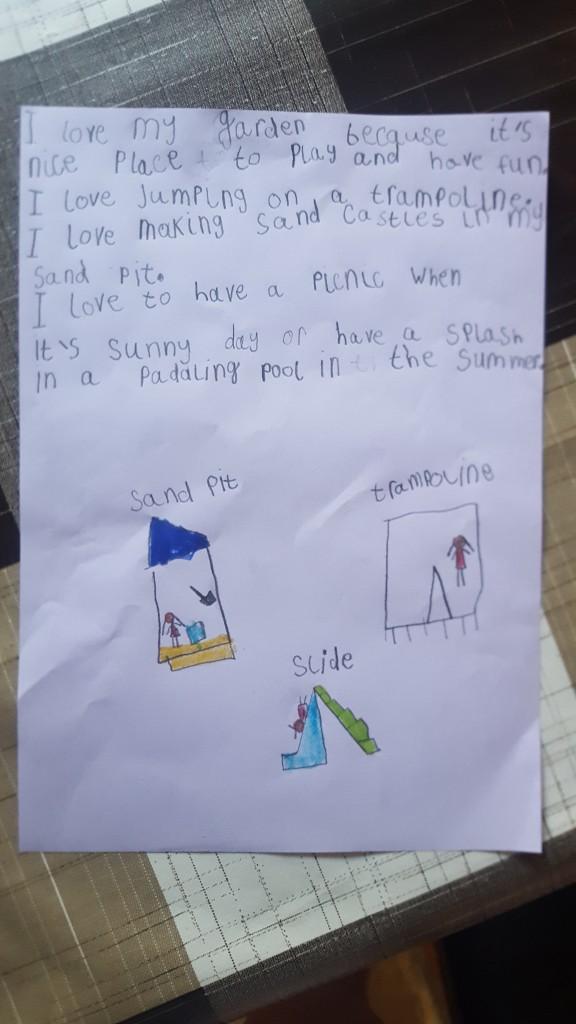 I love my garden because it's
nice place to play and have fun.
I love Jumping on a trampoline.
I love making sand castles in my
sand pit.
I love to have a picnic when
it's sunny day or have a splash
in a paddling pool in the summer.
sand pit
trampoline
slide